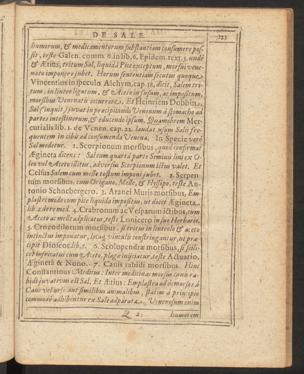 DE SALE. 123
humorum, & medicamentorum substantiam consumere pos-
sit, teste Galen. comm. 6. in lib. 6. Epidem. text. 3. unde
& Ætius, tritum Sal, liquidâ Pice exceptum, morsui vene-
nato imponere jubet. Horum sententiam secutus quoque
Vincentius in speculo Alchym. cap. 18. dicit, Salem tri-
tum, in linteo ligatum, & Aceto infusum, ac impositum,
morsibus Venenatis occurrere. Et Heinricus Dobbin,
Sal, inquit, juvat in praecipitando Venenum à stomacho ad
partes intestinorum, & educendo ipsum. Quamobrem Mer-
curialis lib. 1. de Venen. cap. 22. laudat usum Salis fre-
quentem in cibo ad consumenda Venena. In Specie verò
Sal medetur. 1. Scorpionum morsibus, quod confirmat
Ægineta dicens: Salium quartâ parte Seminis lini ex O-
leo vel Aceto illitus, adversus Scorpionum ictus valet. Et
Celsus Salem cum melle tostum imponi jubet. 2. Serpen-
tum morsibus, cum Origano, Melle, & Hyssopo, teste An-
tonio Schnebergero. 3. Aranei Muris morsibus, Em-
plastri modo cum pice liquida impositum, ut dicit Ægineta,
lib. 4. 4. Crabronum ac Vesparum ictibus, cum
Aceto ac melle adplicatur, teste Lonicero in suo Herbario.
5. Crocodilorum morsibus, si tritum in linteolo & aceto
intinctum imponatur, locus vinculis constringantur, ut prae-
cipit Dioscorid. 6. Scolopendrae morsibus, si
fricatus cum Aceto, plagae injiciatur, teste Actuario,
Ægineta & Nono. 7. Canis rabidi morsibus. Hinc
Constantinus Medicus: Inter medicinas morsus canis ra-
bidi juvativum est Sal. Et Ætius: Emplastra ad morsus à
Cane vel aut similibus animalibus, statim à principio
commodè adhibentur ex Sale adparata. Venenosum enim
Q 2 humorem